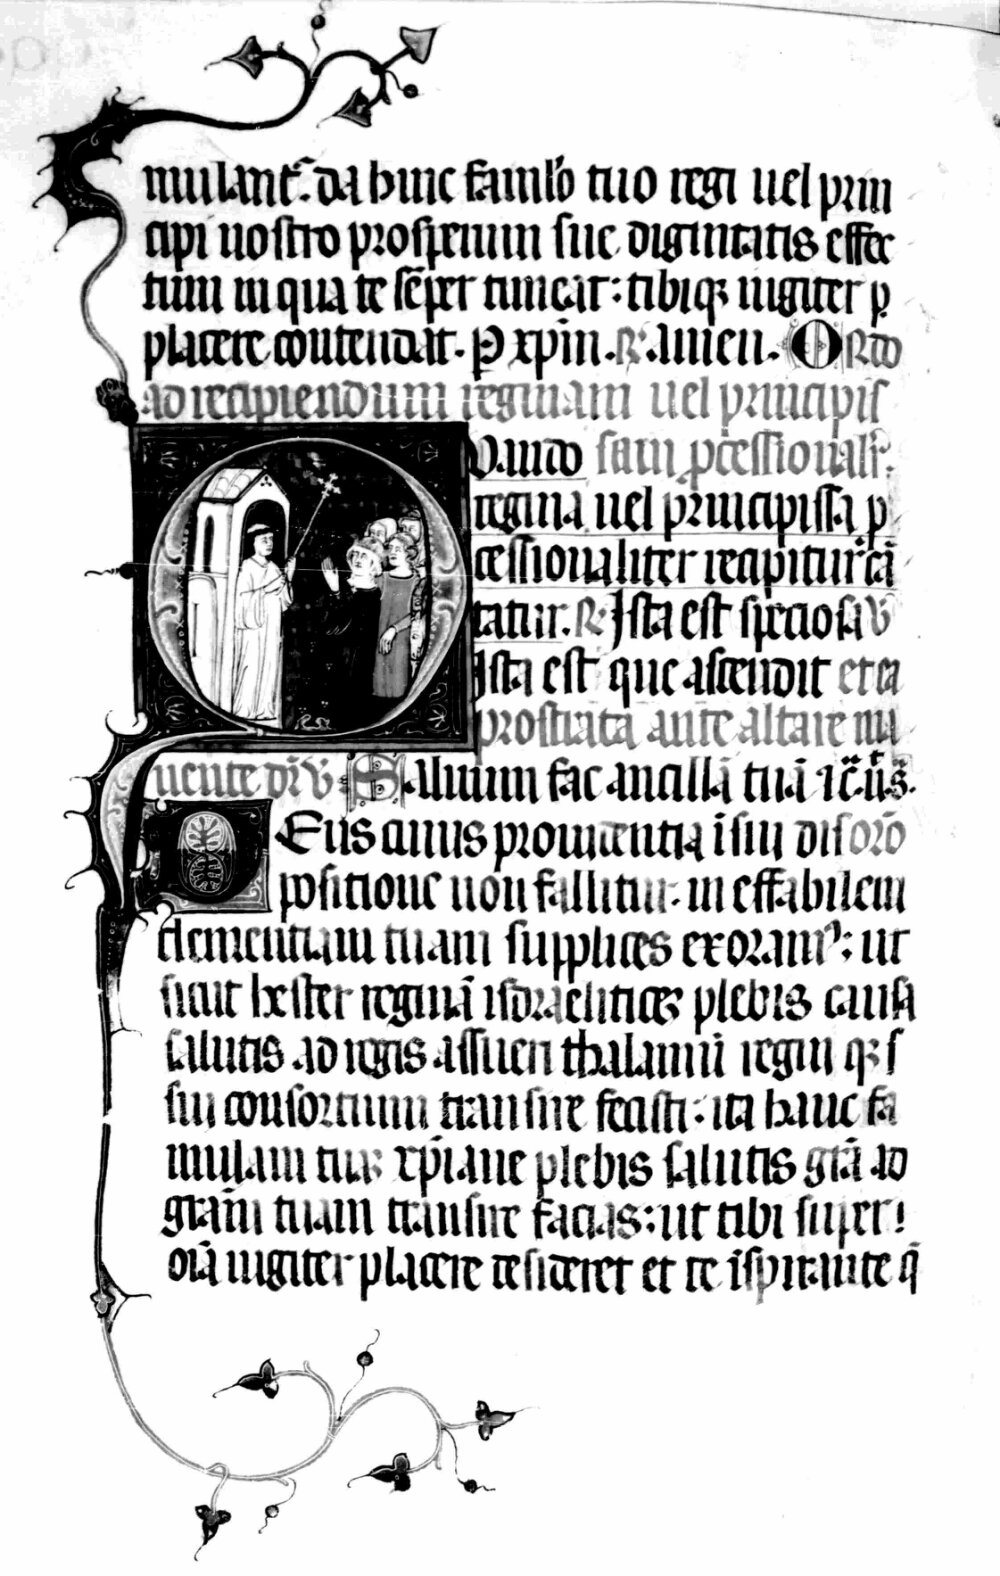 mulant᷒. da huic famło tuo regi uel prin
cipi nostro prosperum sue dignitatis effec
tum in qua te sēper timeat: tibiqꝫ iugiter ꝑ
placere contendat. P xp̄m. R. amen. Ordo
ad recipiendum reginam uel principis
Quando sam ꝓcessionalr̄.
regina uel principissa ꝓ
cessionaliter recipitur cā
tatur. R. Ista est speciosa V
Ista est que ascendit et ea
prostrata ante altare in
uente dr̄ V Saluum fac ancillā tuā
Eus cuius prouidentia ī sui dis orō
positione non fallitur. ineffabilem
clementiam tuam supplices exoram⁹: ut
sicut hester reginā isdraelitice plebis causa
salutis ad regis assueri thalamū regni qꝫ s
sui consortium transire fecisti: ita hanc fa
mulam tuā xp̄iane plebis salutis gr̄a ad
gr̄am tuam transire facias: ut tibi super
om̄ia iugiter placere desideret et te īspirante q̄